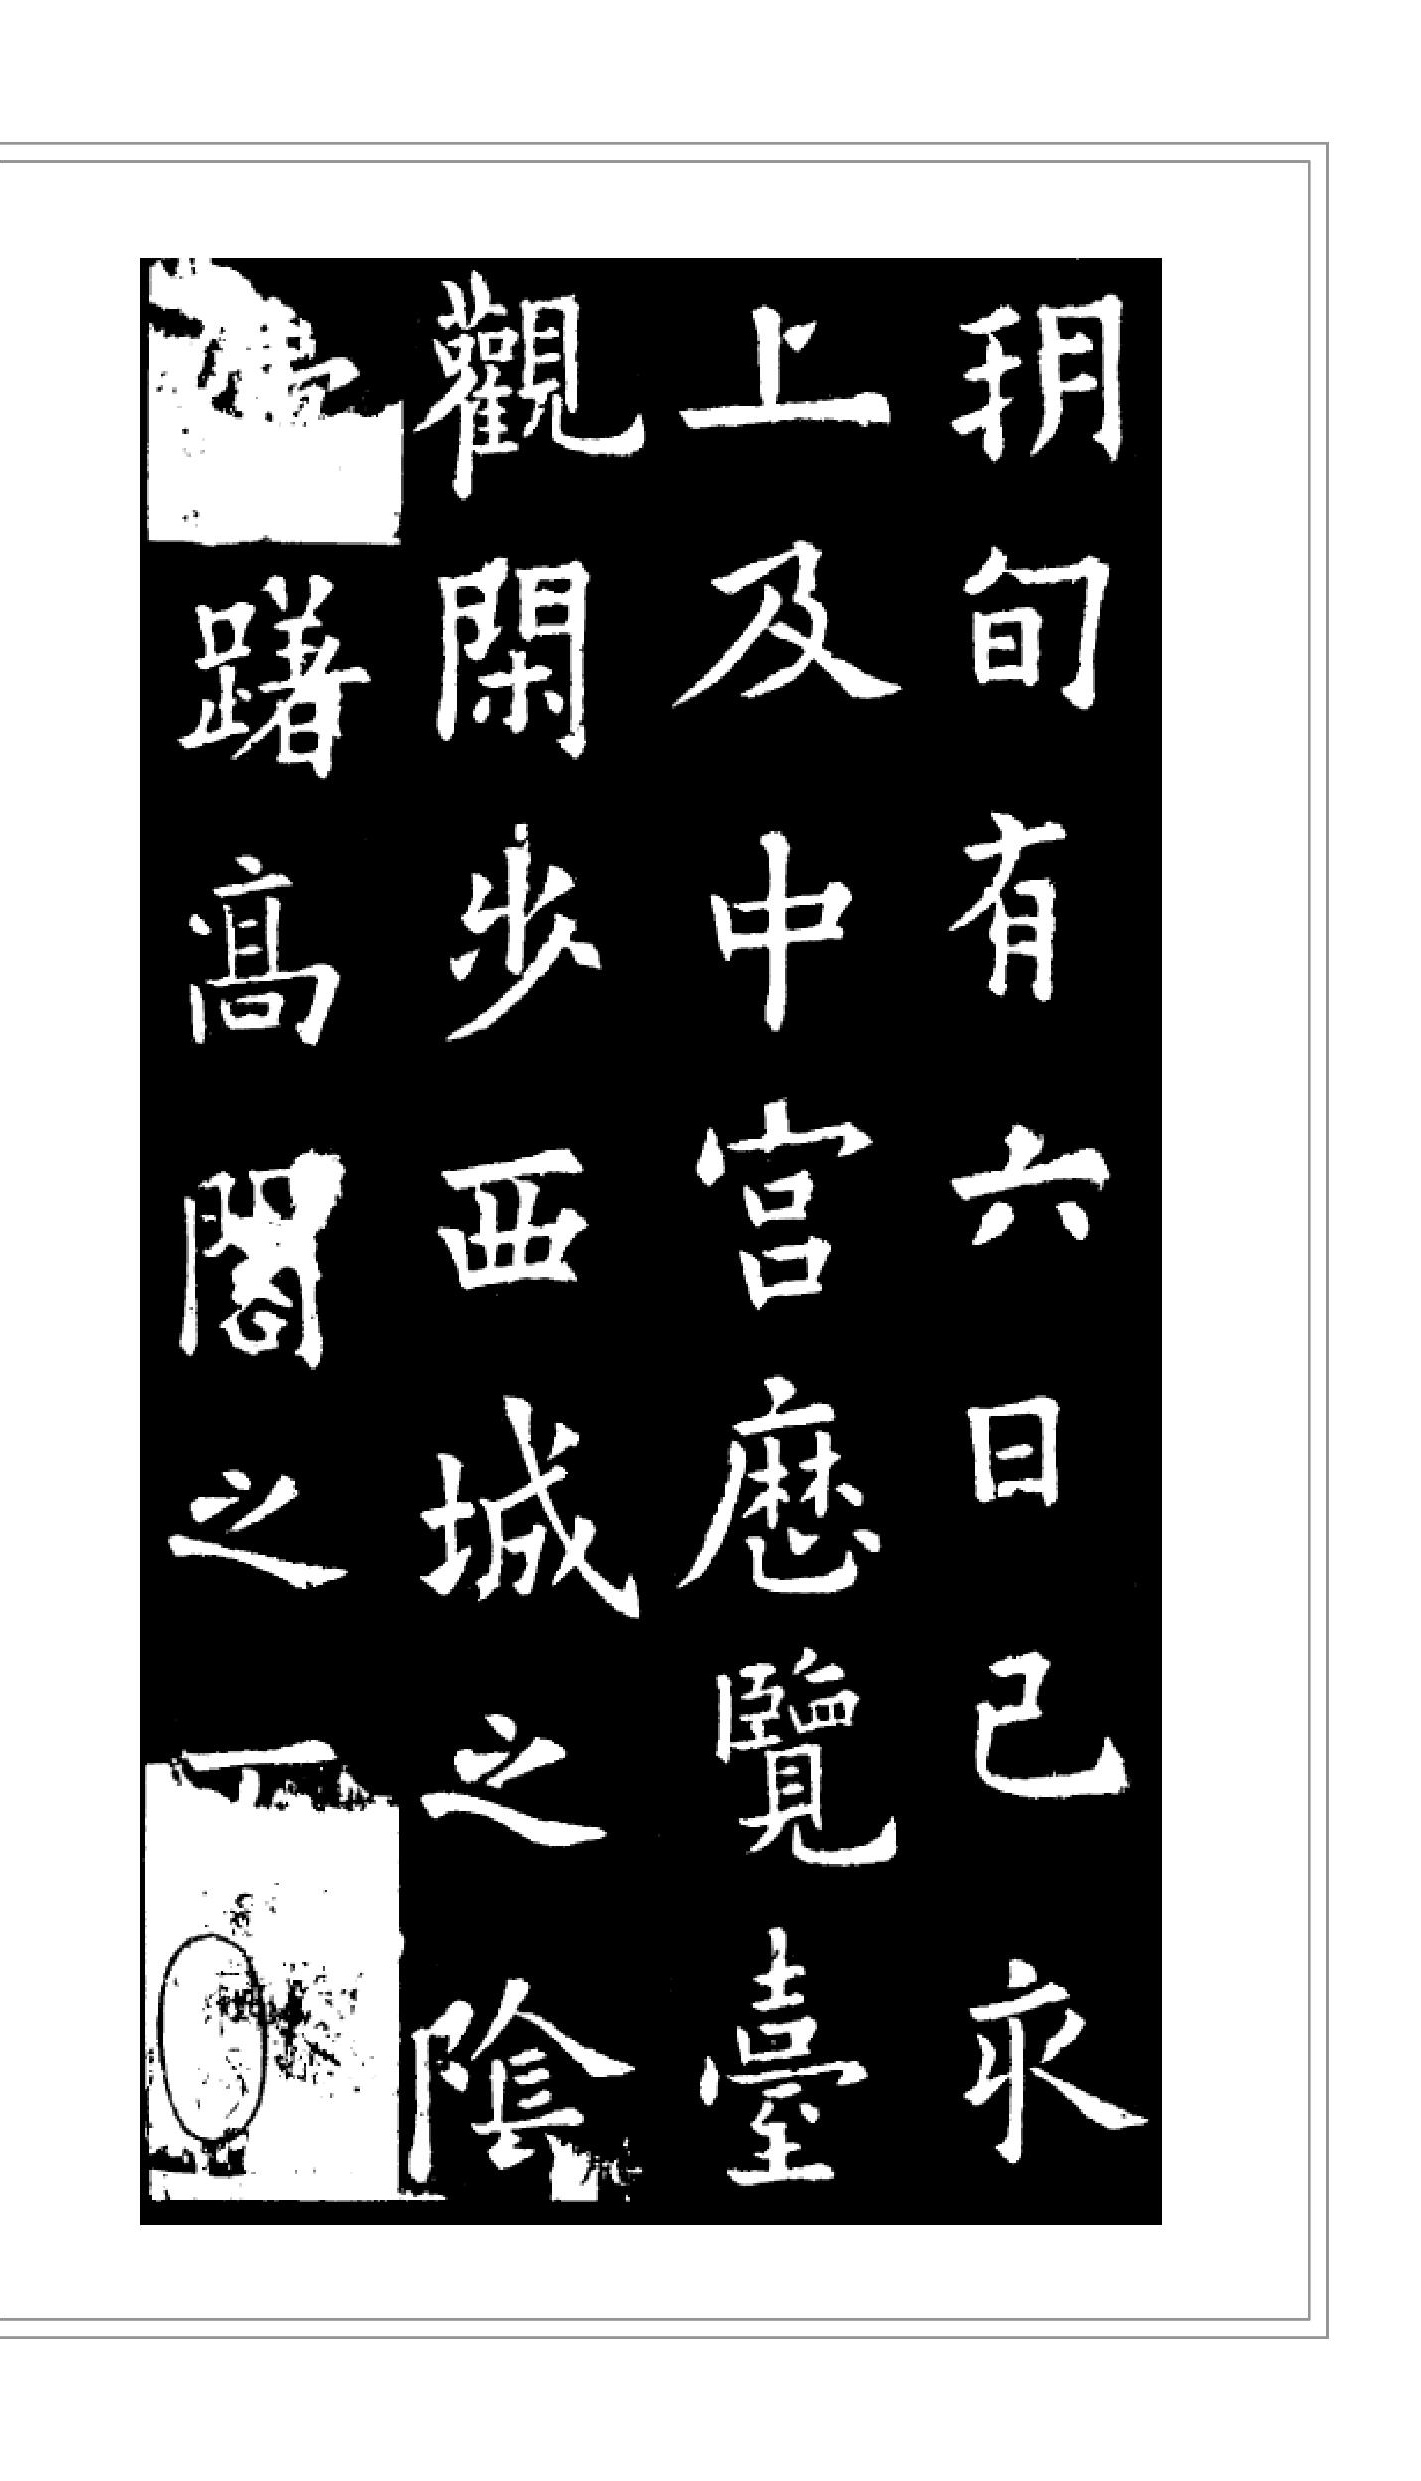 玥旬有六日己亥
上及中宮歷覽臺
觀閑步西城之陰
躊躇高閣之下